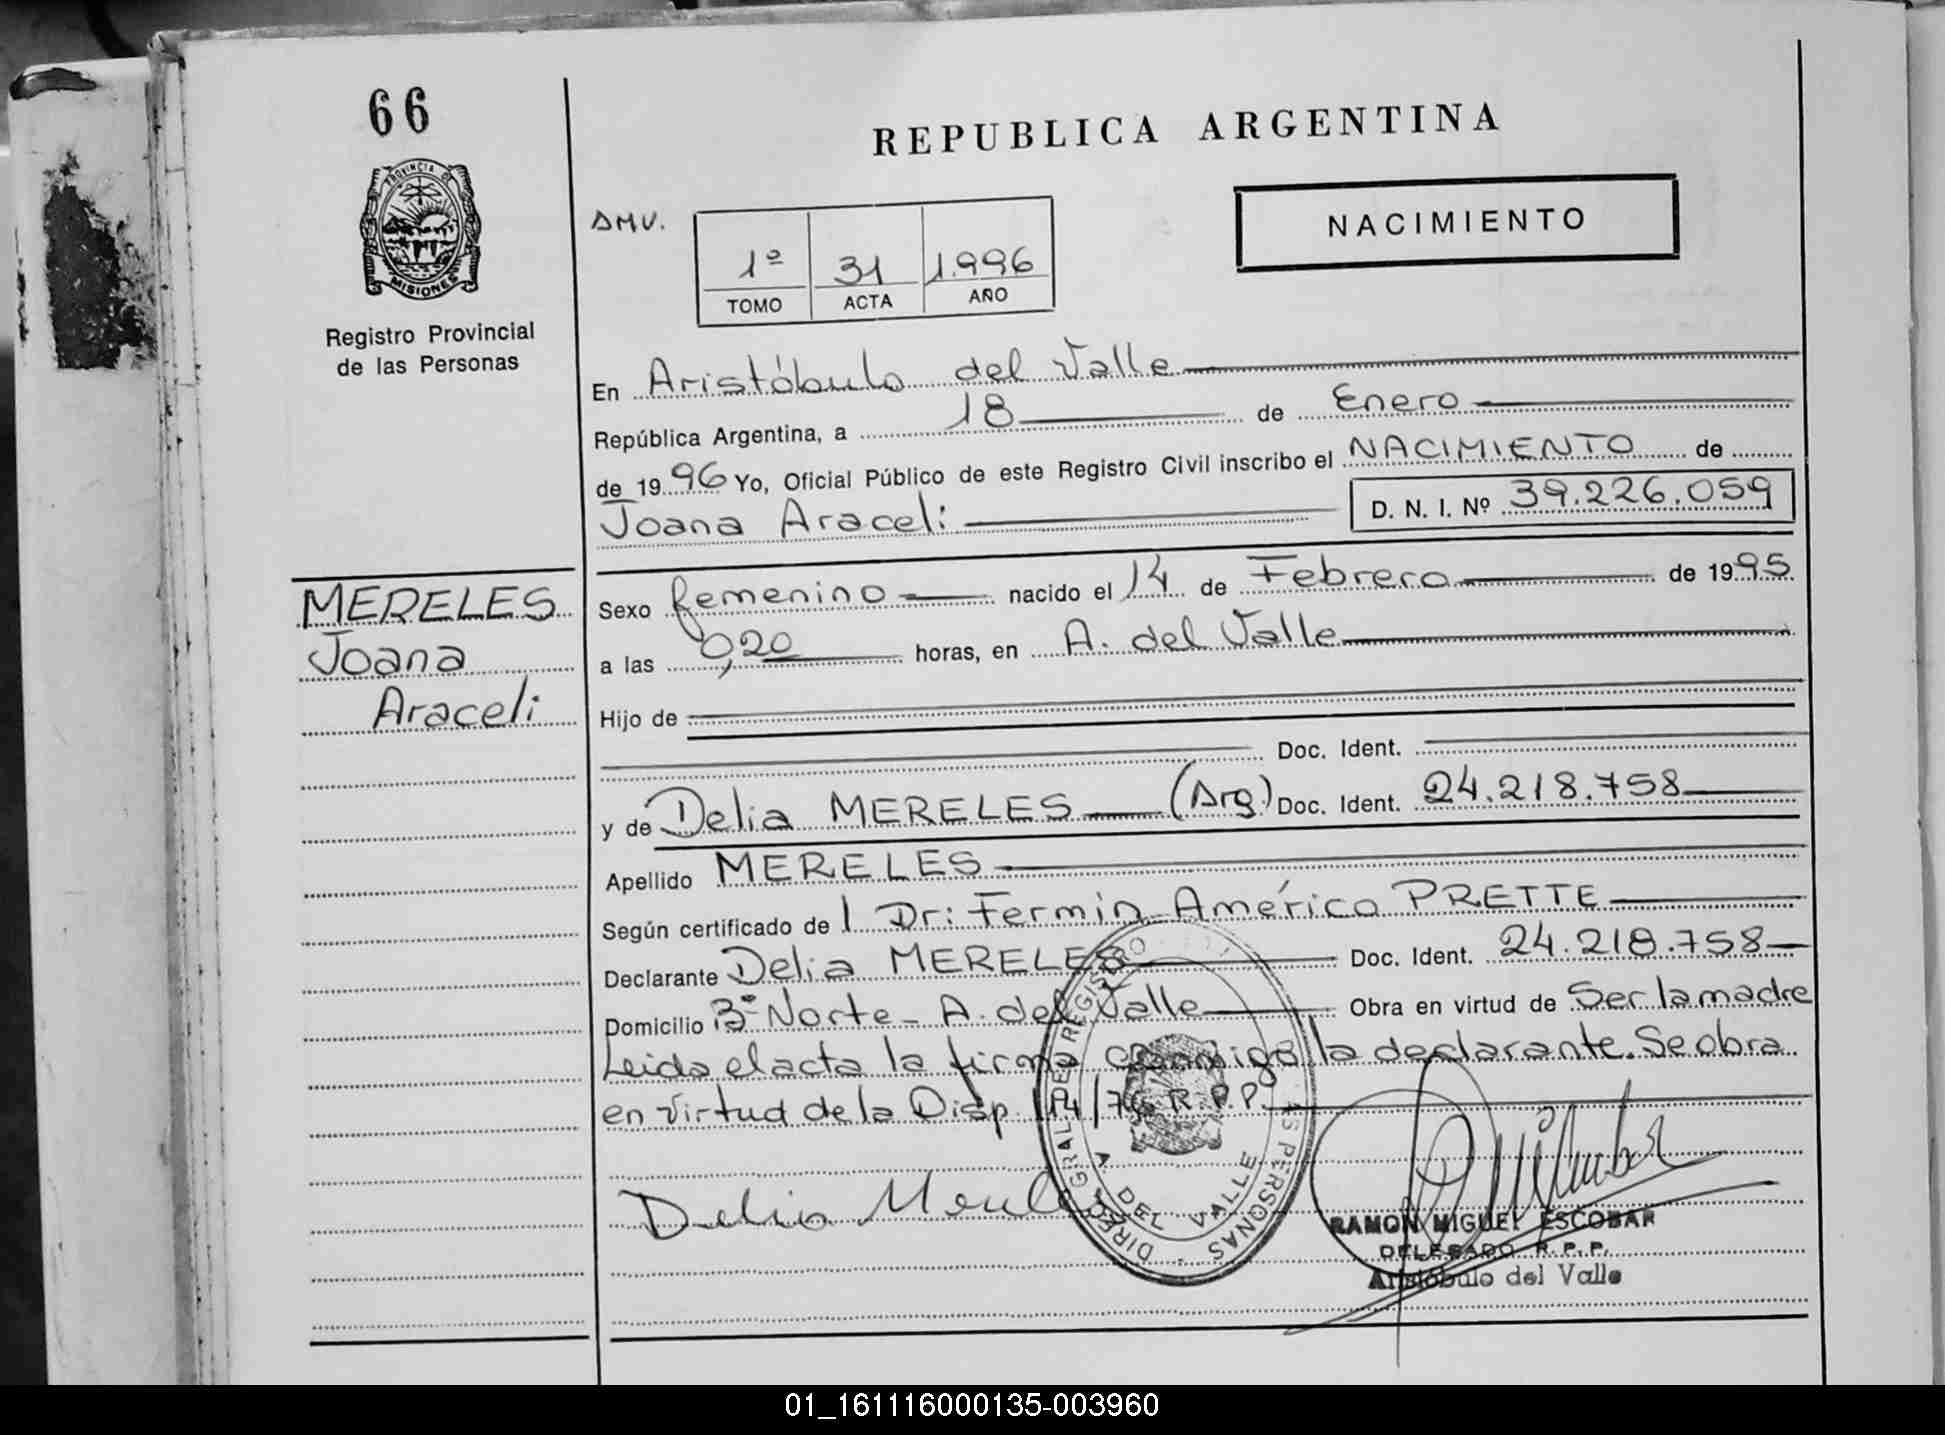 66
REPUBLICA ARGENTINA
PROVINCIA DE
MISIONES
Registro Provincial
de las Personas
DMV.
1º 31 1.996
TOMO ACTA AÑO
NACIMIENTO
En Aristóbulo del Valle
República Argentina, a 18 de Enero
de 1996 Yo, Oficial Público de este Registro Civil inscribo el NACIMIENTO de
Joana Araceli D. N. I. Nº 39.226.059
MERELES
Joana
Araceli
Sexo femenino nacido el 14 de Febrero de 1995
a las 0,20 horas, en A. del Valle
Hijo de
Doc. Ident.
y de Delia MERELES (Arg.) Doc. Ident. 24.218.758
Apellido MERELES
Según certificado de l Dr: Fermin América PRETTE
Declarante Delia MERELES Doc. Ident. 24.218.758
Domicilio Bº Norte - A. del Valle Obra en virtud de Ser la madre
Leida el acta la firma conmigo la declarante. Se obra
en virtud de la Disp 114/76 R.P.P.
Delia
DIREC. GRAL. DEL REGISTRO PERSONAS
A. DEL VALLE
RAMON MIGUEL ESCOBAR
DELEGADO R. P. P.
Aristóbulo del Valle
01_161116000135-003960